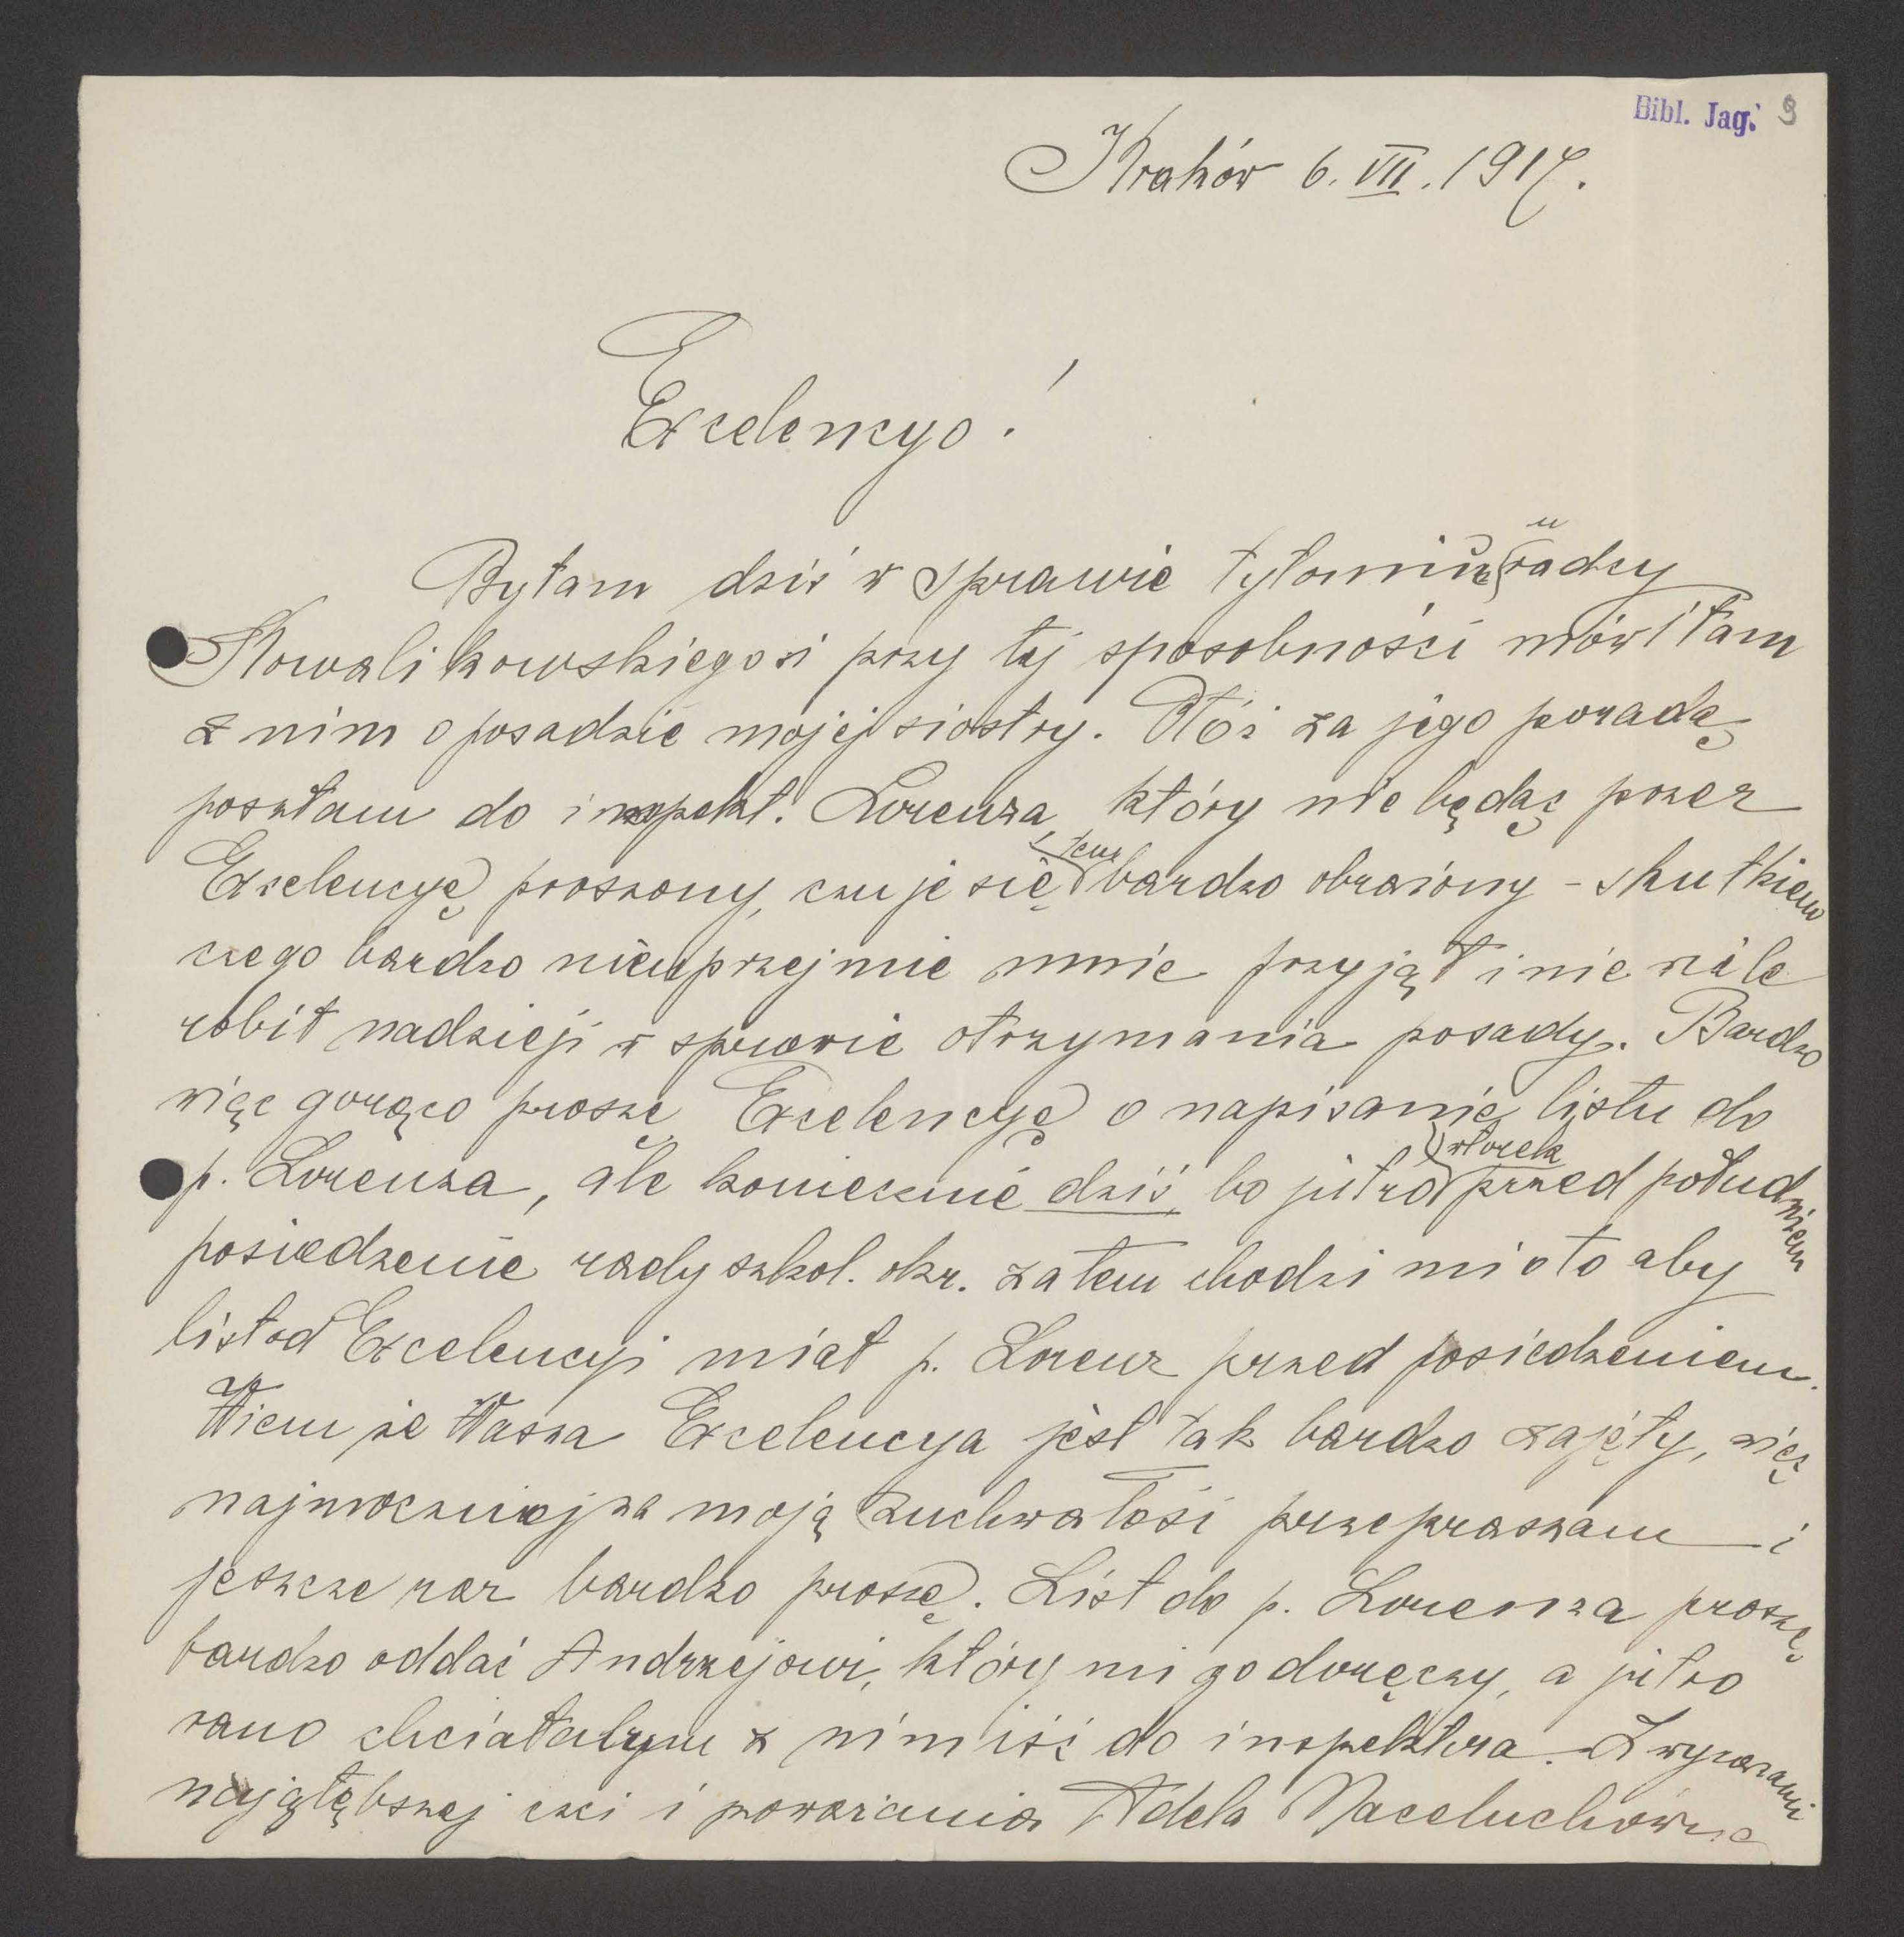 Bibl. Jag. 9
Kraków 6. VII. 1917.
Excelencyo!
Byłam dziś w sprawie tytoniu u radcy
Kowalikowskiego i przy tej sposobności mówiłam
z nim o posadzie mojej siostry. Otóż za jego poradą
poszłam do inspekt. Lorenza, który nie będąc przez
Excelencyę proszony, czuje się tem bardzo obrażony - skutkiem
czego bardzo nieuprzejmie mnie przyjął i nie wiele
robił nadzieji w sprawie otrzymania posady. Bardzo
więc gorąco proszę Excelencyę o napisanie listu do
p. Lorenza, ale koniecznie dziś, bo jutro wtorek przed południem
posiedzenie rady szkol. okr. zatem chodzi mi o to aby
list od Excelencyi miał p. Lorenz przed posiedzeniem.
Wiem że Wasza Excelencya jest tak bardzo zajęty, więc
najmocniej za moją zuchwałość przepraszam i
jeszcze raz bardzo proszę. List do p. Lorenza proszę
bardzo oddać Andrzejowi, który mi go doręczy, a jutro
rano chciałabym z nim iść do inspektora. Z wyrazami
najgłębszej czci i poważania Adela Naceluchówna